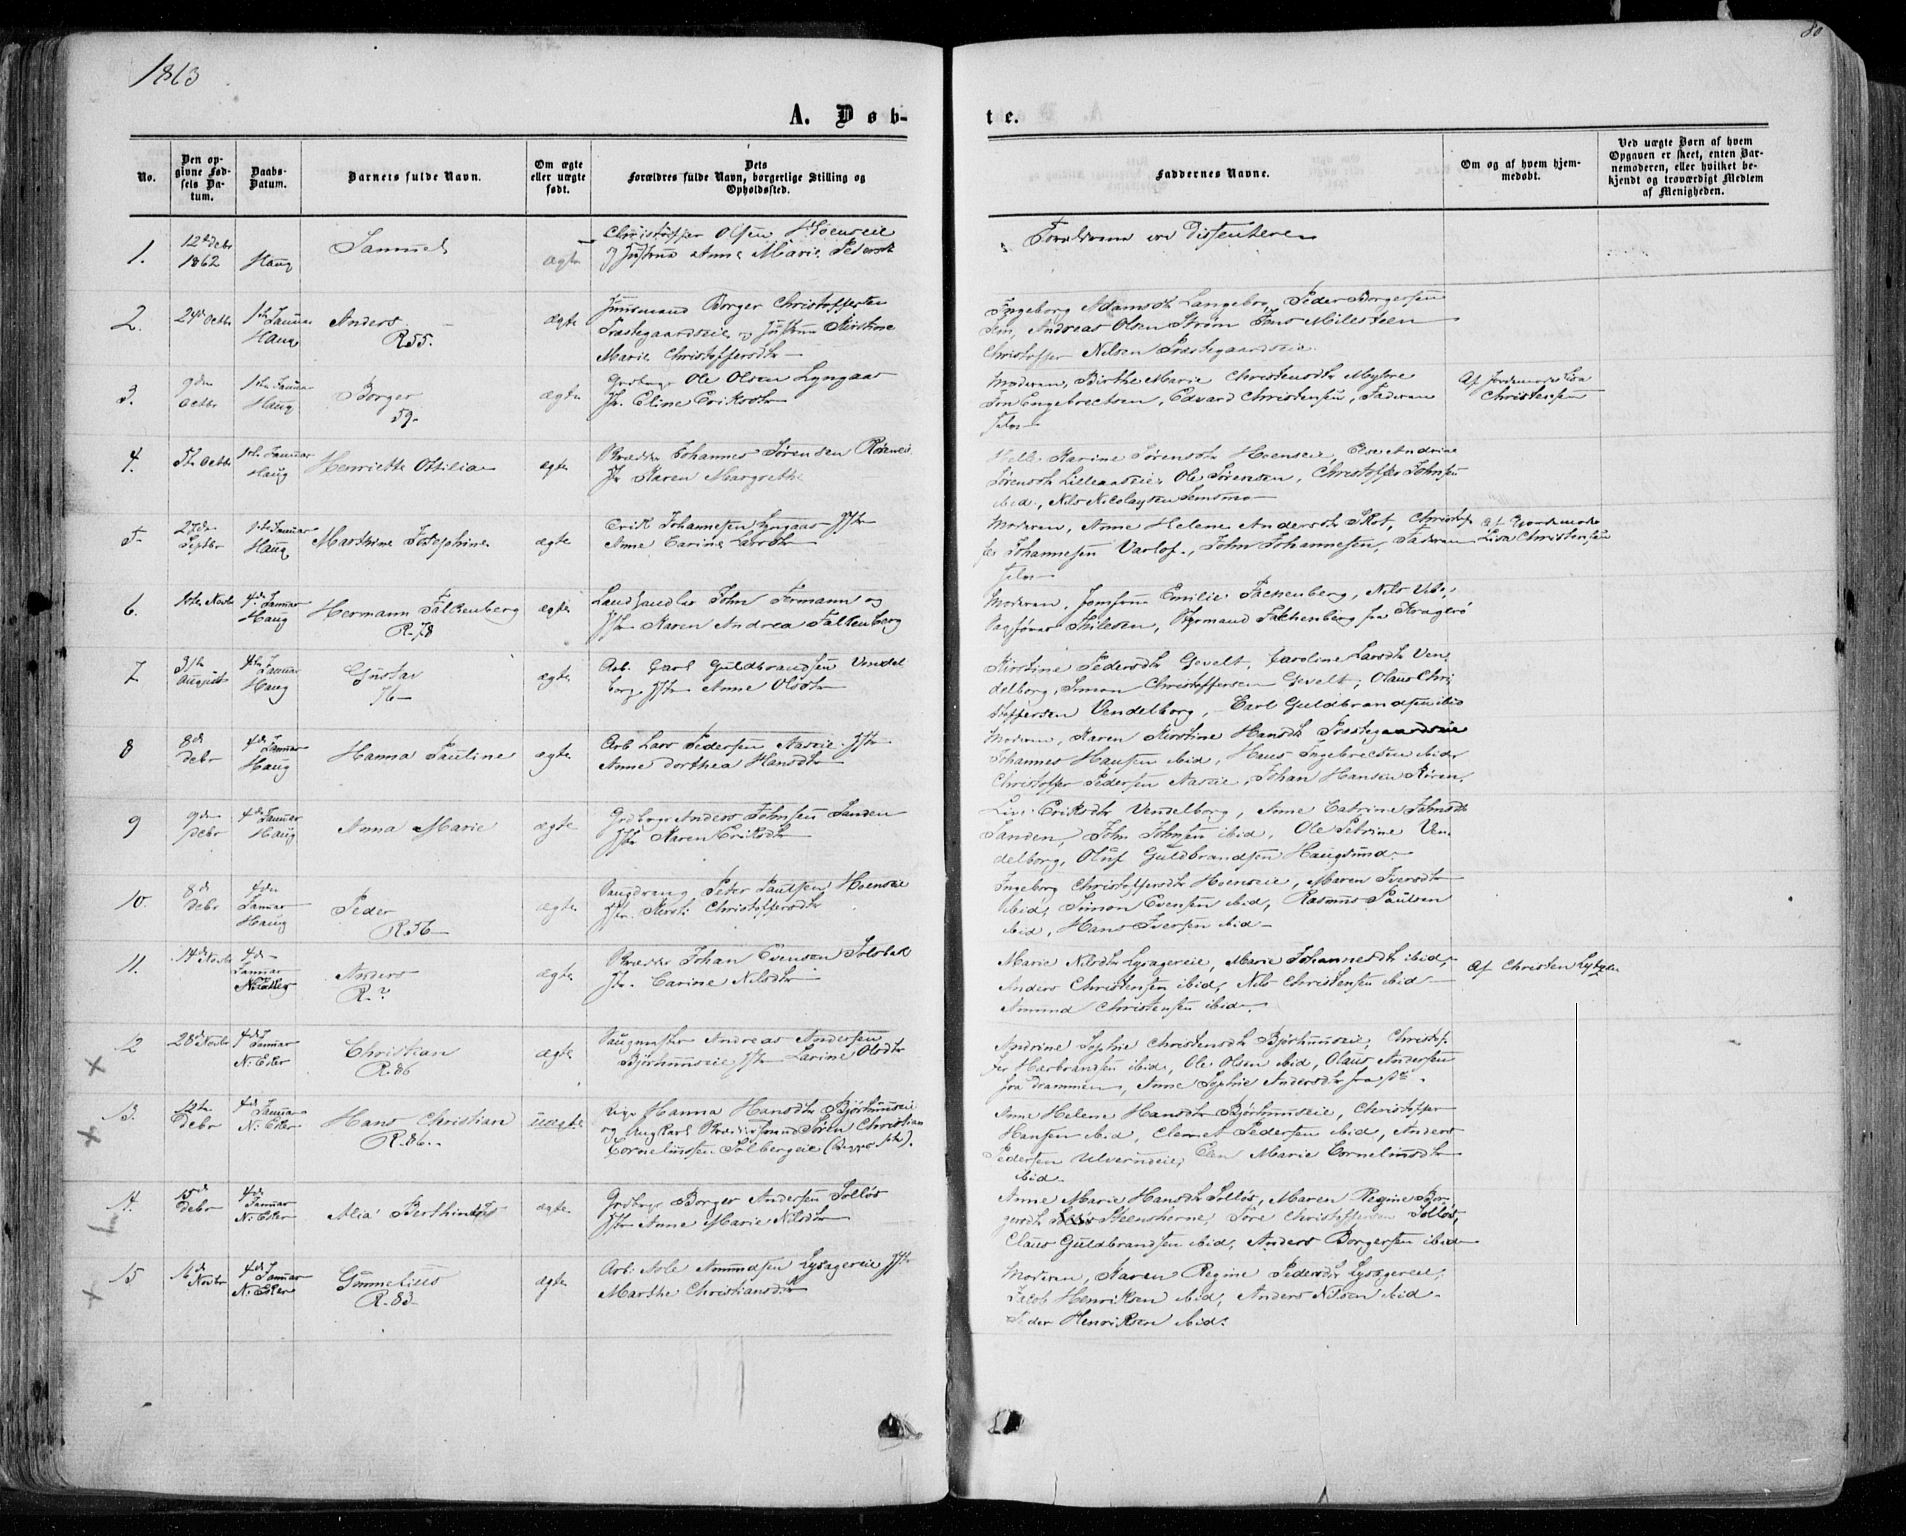 1863
80
A. Døb-
te.
No.
Den op-
givne Fød-
sels Da-
tum.
Daabs-
Datum.
Barnets fulde Navn.
Om ægte
eller uægte
født.
Dets
Forældres fulde Navn, borgerlige Stilling og
Opholdssted.
Faddernes Navne.
Om og af hvem hjem-
medøbt.
Ved uægte Børn af hvem
Opgaven er skeet, enten Bar-
nemoderen, eller hvilket be-
kjendt og troværdigt Medlem
af Menigheden.
1.
12te Debr
1862
Haug
Samuel
ægte
Christoffer Olsen Hoenseie
og Hustrue Anne Marie Pedersdt
Forældrene ere Dissentere
2.
24de Octbr
1ste Januar
Haug
Anders
R. 55.
ægte
Huusmand Borger Christoffersen
Præstegaardseie og Hustrue Kirstine
Marie Christoffersdtr
Ingeborg Adamsdtr Langebro, Peder Borgersen
Andreas Olsen Strøm Jens Milesteen
Christoffer Nilsen Præstegaardseie.
3.
9de
Octbr
1ste Januar
Haug
Borger
59.
ægte
Grdbrgr Ole Olsen Lyngaas
Eline Eriksdtr
Moderen, Birthe Marie Christensdtr Myhre
Engebrectsen, Edvard Christensen, Faderen
selv
Af Jordemoder Lisa
Christensen
4.
5te Octbr
1ste Januar
Haug
Henriette Ottilia
ægte
Johannes Sørensen Røreneie
Karen Margrethe
Helle Karine Sørensdtr Hoenseie, Else Andrine
Sørensdtr Lilleaaseie, Ole Sørensen, Christoffer Johnsen
ibid, Nils Nicolaysen
5
27de
Septbr
1ste Januar
Haug
Marthine Josephine
ægte
Erik Johannesen Lyngaas
Anne Carine Larsdtr
Moderen, Anne Helene Andersdtr Skot, Christof-
fer Johannesen Varlo, John Johannesen, Faderen
selv
Af Gjordemoder
Lisa Christensen
6.
Novbr
4de Januar
Haug
Hermann Falkenberg
R. 78
ægte
Landhandler John Hermann og
Karen Andrea Falkenberg
Moderen, Jomfrue Emilie Falkenberg, Nils
Sagfører Nilesen, Hermand Falkenberg fra Kragerø
7
31te
August
4de Januar
Haug
Gustav
76
ægte
Arb. Carl Guldbrandsen Vendel-
borg, Anne Olsdtr
Kirstine Pedersdtr Gevelt, Caroline Larsdtr Ven-
delborg, Simon Christoffersen Gevelt, Olaus Chri-
stoffersen Vendelborg, Carl Guldbrandsen ibid
8
8de
Debr
4de Januar
Haug
Hanna Pauline
ægte
Arb Lars Pedersen Aaseie
Anne Dorthea Hansdtr
Moderen, Karen Kirstine Hansdtr Præstegaardseie
Johannes Hansen ibid, Hans Ingebrectsen ibid
Christoffer Pedersen Aaseie, Johan Hansen Røren,
9
9de
Debr
4de Januar
Haug
Anna Marie
ægte
Grdbrgr Anders Johnsen Sanden
Karen Eriksdtr
Live Eriksdtr Vendelborg, Anne Catrine Johnsdtr
Sanden, John Johnsen ibid, Ole Petrine Ven-
delborg, Oluf Guldbrandsen Haugsund.
10.
8de
Debr
4de
Januar
Haug
Peder
R. 56
ægte
Peder Paulsen Hoenseie
Kirsti Christoffersdtr
Ingeborg Christoffersdtr Hoenseie, Maren Iversdtr
ibid, Simon Evensen ibid, Rasmus Paulsen
ibid, Hans Iversen ibid
11.
14de Novbr
4de
Januar
N. Eker
Anders
R. ?
ægte
Johan Evensen
Carine Nilsdtr
Marie Nilsdtr Lysagereie, Marie Johannesdtr ibid,
Anders Christensen ibid, Nils Christensen ibid
Amund Christensen ibid.
Af Christen
12
28de Novbr
4de Januar
N. Eker
Christian
R. 86
ægte
Andreas Andersen
Bjørhuuseie Larine Olsdtr
Andrine Sophie Christensdtr Bjørhuuseie, Christof-
fer Harbrandsen ibid, Ole Olsen ibid, Olaus Andersen
fra Drammen, Anne Sophie Andersdtr fra
13.
12te
Debr
4de Januar
N. Eker
Hans Christian
R. 86.
uægte
Pige Hanna Hansdtr Bjørhuuseie
og Ungkarl Søren Christian
Corneliussen Solbergeie
Anne Helene Hansdtr Bjørhuuseie, Christoffer
Hansen ibid, Clemet Pedersen ibid, Anders
Pedersen Ulverneie, Elen Marie Corneliusdtr
ibid.
14.
15de
Debr
4de
Januar
N. Eker
ægte
Grdbrgr Borger Andersen Solløs
Anne Marie Nilsdtr
Anne Marie Hansdtr Solløs, Maren Regine Bor-
gersdtr Steensherne, Tore Christoffersen Solløs,
Claus Guldbrandsen ibid, Anders Borgersen ibid
15
Novbr
4de
Januar
N. Eker
Gunnelius
R. 83
ægte
Arb. Amundsen Lysagereie
Marthe Christiansdtr
Moderen, Karen Regine Pedersdtr Lysagereie,
Jacob Henriksen ibid, Anders Nilsen ibid
Peder Henriksen ibid.